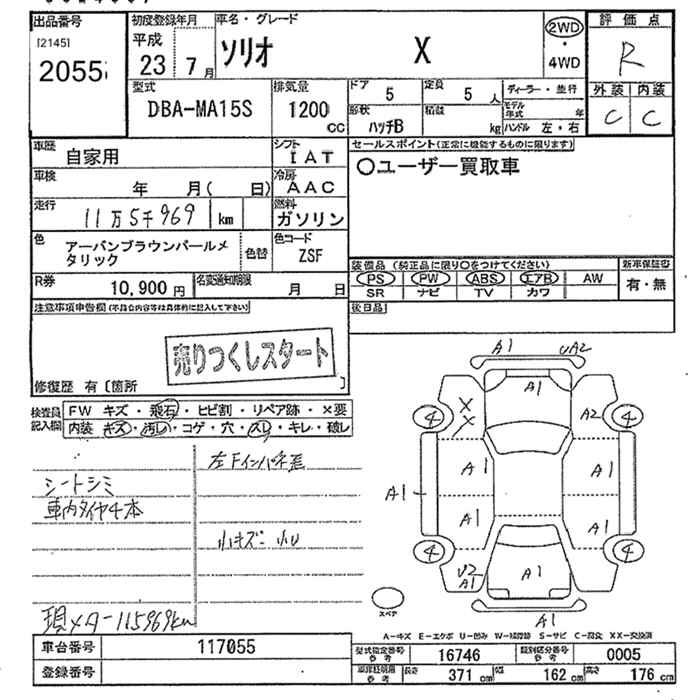 出品番号 初度登録年月 車名・グレード 評価点
[2145] 平成 ソリオ X 2WD・4WD R
2055 23年7月
型式 DBA-MA15S 排気量 1200cc ドア 5 定員 5人 ディーラー・並行 外装 内装
形状 ハッチB 積載 kg モデル年式 年 ハンドル 左・右 C C
車歴 自家用 シフト IAT セールスポイント(正常に機能するものに限ります)
車検 年 月( 日) 冷房 AAC 〇ユーザー買取車
走行 11万5千969 km 燃料 ガソリン
色 アーバンブラウンパールメタリック 色替 色コード ZSF
装備品(純正品に限り〇をつけてください) 新車保証書
R券 10,900円 名変通知期限 月 日 PS PW ABS エアB AW 有・無
SR ナビ TV カワ
注意事項申告欄(不具合内容等は具体的に記入して下さい) 後日品
売りつくしスタート
修復歴 有〔箇所 〕
検査員記入欄 FW キズ・飛石・ヒビ割・リペア跡・×要
内装 キズ・汚れ・コゲ・穴・スレ・キレ・破レ
シートシミ
車内タイヤ4本
小キズ・小U
現メーター115969km
A1 UA2
A1
4 X X A2 4
A1 A1
A1
A1 A1
4 4
U2 A1 A1
A1
スペア
A-キズ E-エクボ U-凹み W-補修跡 S-サビ C-腐食 XX-交換済
車台番号 117055 型式指定番号 参考 16746 類別区分番号 参考 0005
登録番号 長さ 371cm 幅 162cm 高さ 176cm